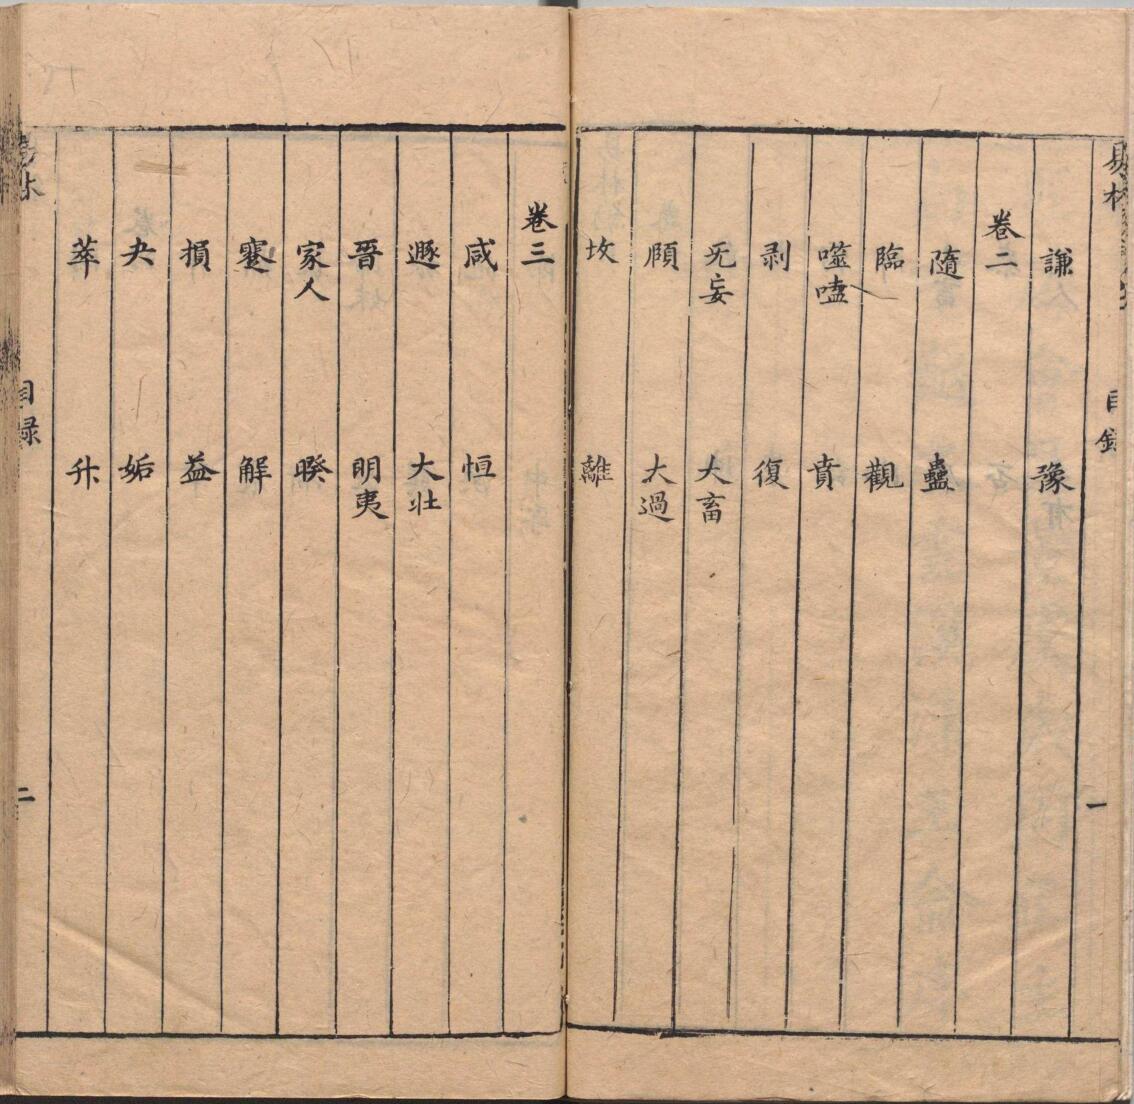 易林
目錄
一
謙 豫
卷二
隨 蠱
臨 觀
噬嗑 賁
剥 復
旡妄 大畜
頤 大過
坎 離
卷三
咸 恒
遯 大壯
晉 明夷
家人 睽
蹇 解
損 益
夬 姤
萃 升
易林
目録
二